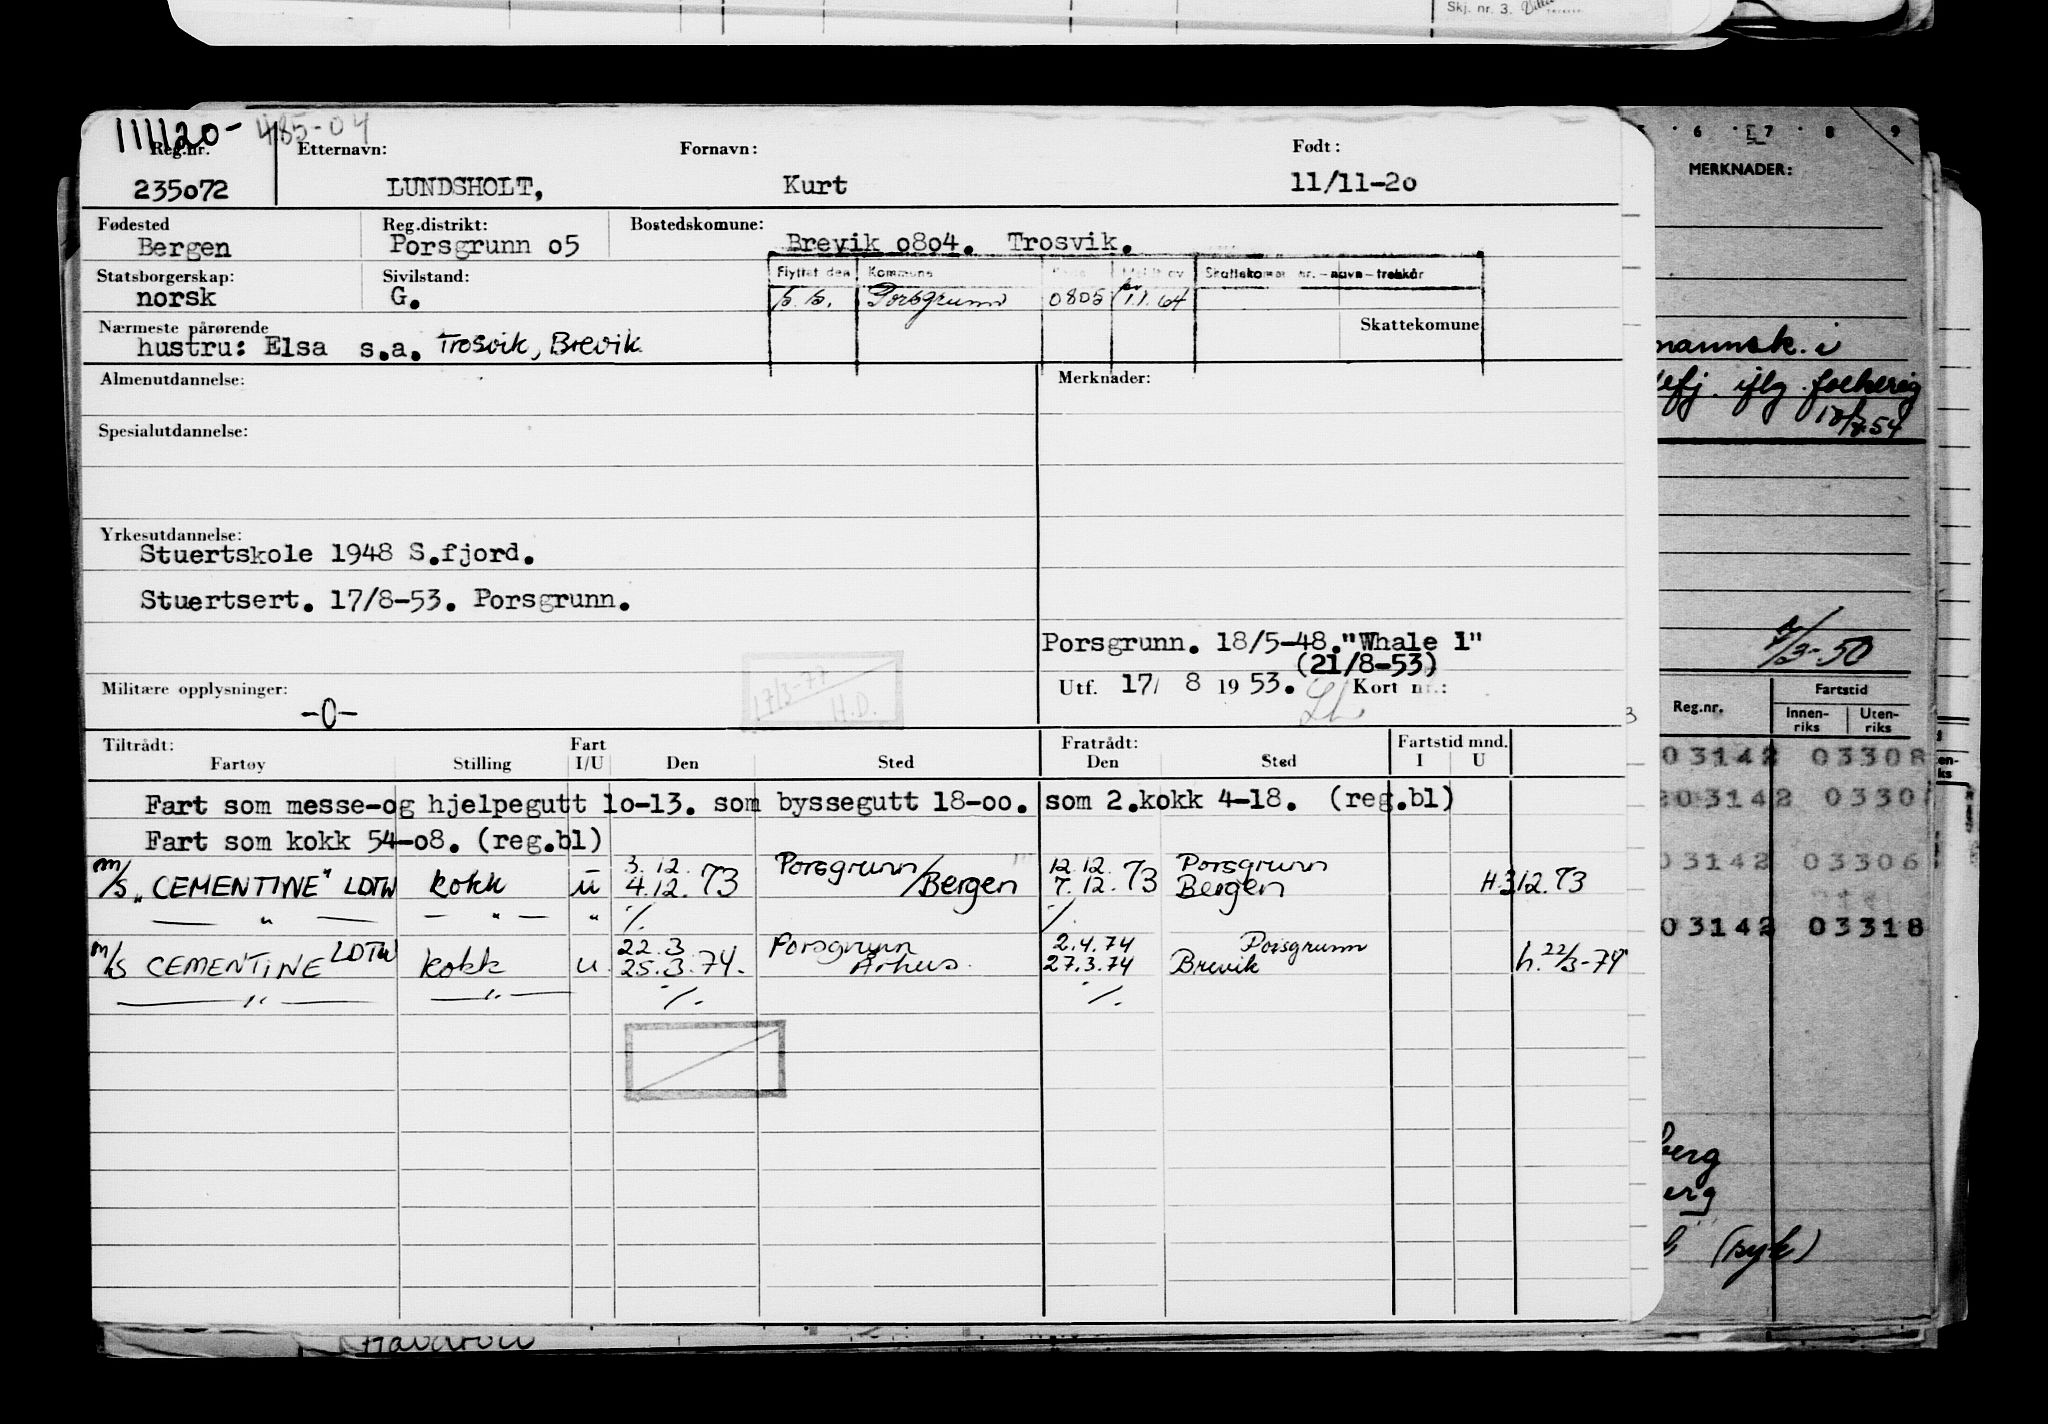 Skj. nr. 3.
111120- 485-04
Reg.nr. Etternavn: Fornavn: Født:
235072 LUNDSHOLT, Kurt 11/11-20
Fødested Reg.distrikt: Bostedskomune:
Bergen Porsgrunn 05 Brevik 0804. Trosvik.
Statsborgerskap: Sivilstand: Flyttet den Kommune Meldt av Skattekomm. nr. - navn - trekkår
norsk G. s.s. Porsgrunn 0805 1.1.64
Nærmeste pårørende Skattekomune
hustru: Elsa s.a. Trosvik, Brevik
Almenutdannelse: Merknader:
Spesialutdannelse:
Yrkesutdannelse:
Stuertskole 1948 S.fjord.
Stuertsert. 17/8-53. Porsgrunn.
Porsgrunn. 18/5-48. "Whale 1"
(21/8-53)
Militære opplysninger: 17/3-77 H.D. Utf. 17/ 8 1953. Kort nr.:
-0-
Tiltrådt: Fart Fratrådt: Fartstid mnd.
Fartøy Stilling I/U Den Sted Den Sted I U
Fart som messe-og hjelpegutt 10-13. som byssegutt 18-00. som 2.kokk 4-18. (reg.bl)
Fart som kokk 54-08. (reg.bl)
3.12. Porsgrunn 12.12. Porsgrunn
m/s "CEMENTINE" LDTW kokk u 4.12.73 /Bergen 7.12.73 Bergen H.3.12.73
— " — — " — " ./. ./.
22.3 Porsgrunn 2.4.74 Porsgrunn
m/s CEMENTINE LDTW kokk u 25.3.74. Århus 27.3.74 Brevik h.22/3-74
— " — — " — ./. ./.
6 7 8 9
MERKNADER:
mannsk. i
efj. iflg.
18/8-54
/3-50
Reg.nr. Fartstid
Innen-riks Uten-riks
03142 03308
203142 0330
03142 03306
03142 03318
berg
erg
(syk)